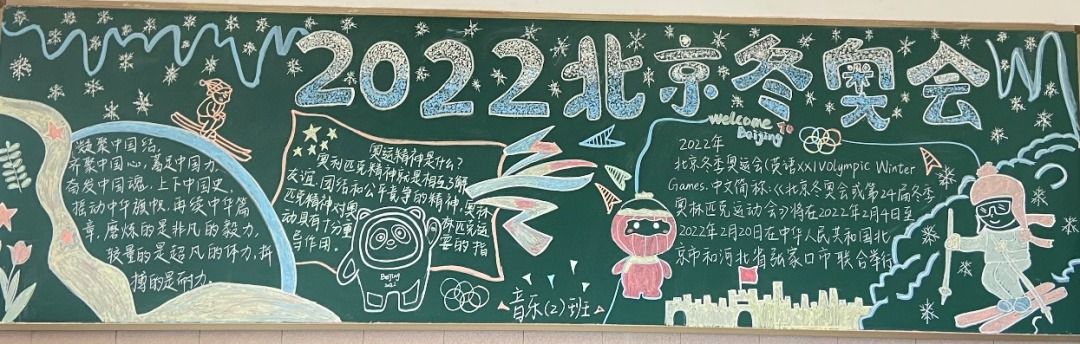 2022北京冬奥会
welcome to
Beijing
凝聚中国结,
齐聚中国心,赢足中国力,
奋发中国魂,上下中国史,
摇动中华旗帜,再续中华篇
章,磨炼的是非凡的毅力,
较量的是超凡的体力,拼
搏的是耐力。
奥运精神是什么?
奥利匹克精神就是相互了解
友谊、团结和公平竞争的精神,奥林
匹克精神对奥林匹克运
动具有十分重要的指
导作用。
Beijing
2022
音乐(2)班
2022年
北京冬季奥运会(英语XXIVOlympic Winter
Games,中文简称:《北京冬奥会或第24届冬季
奥林匹克运动会》)将在2022年2月4日至
2022年2月20日在中华人民共和国北
京市和河北省张家口市联合举行